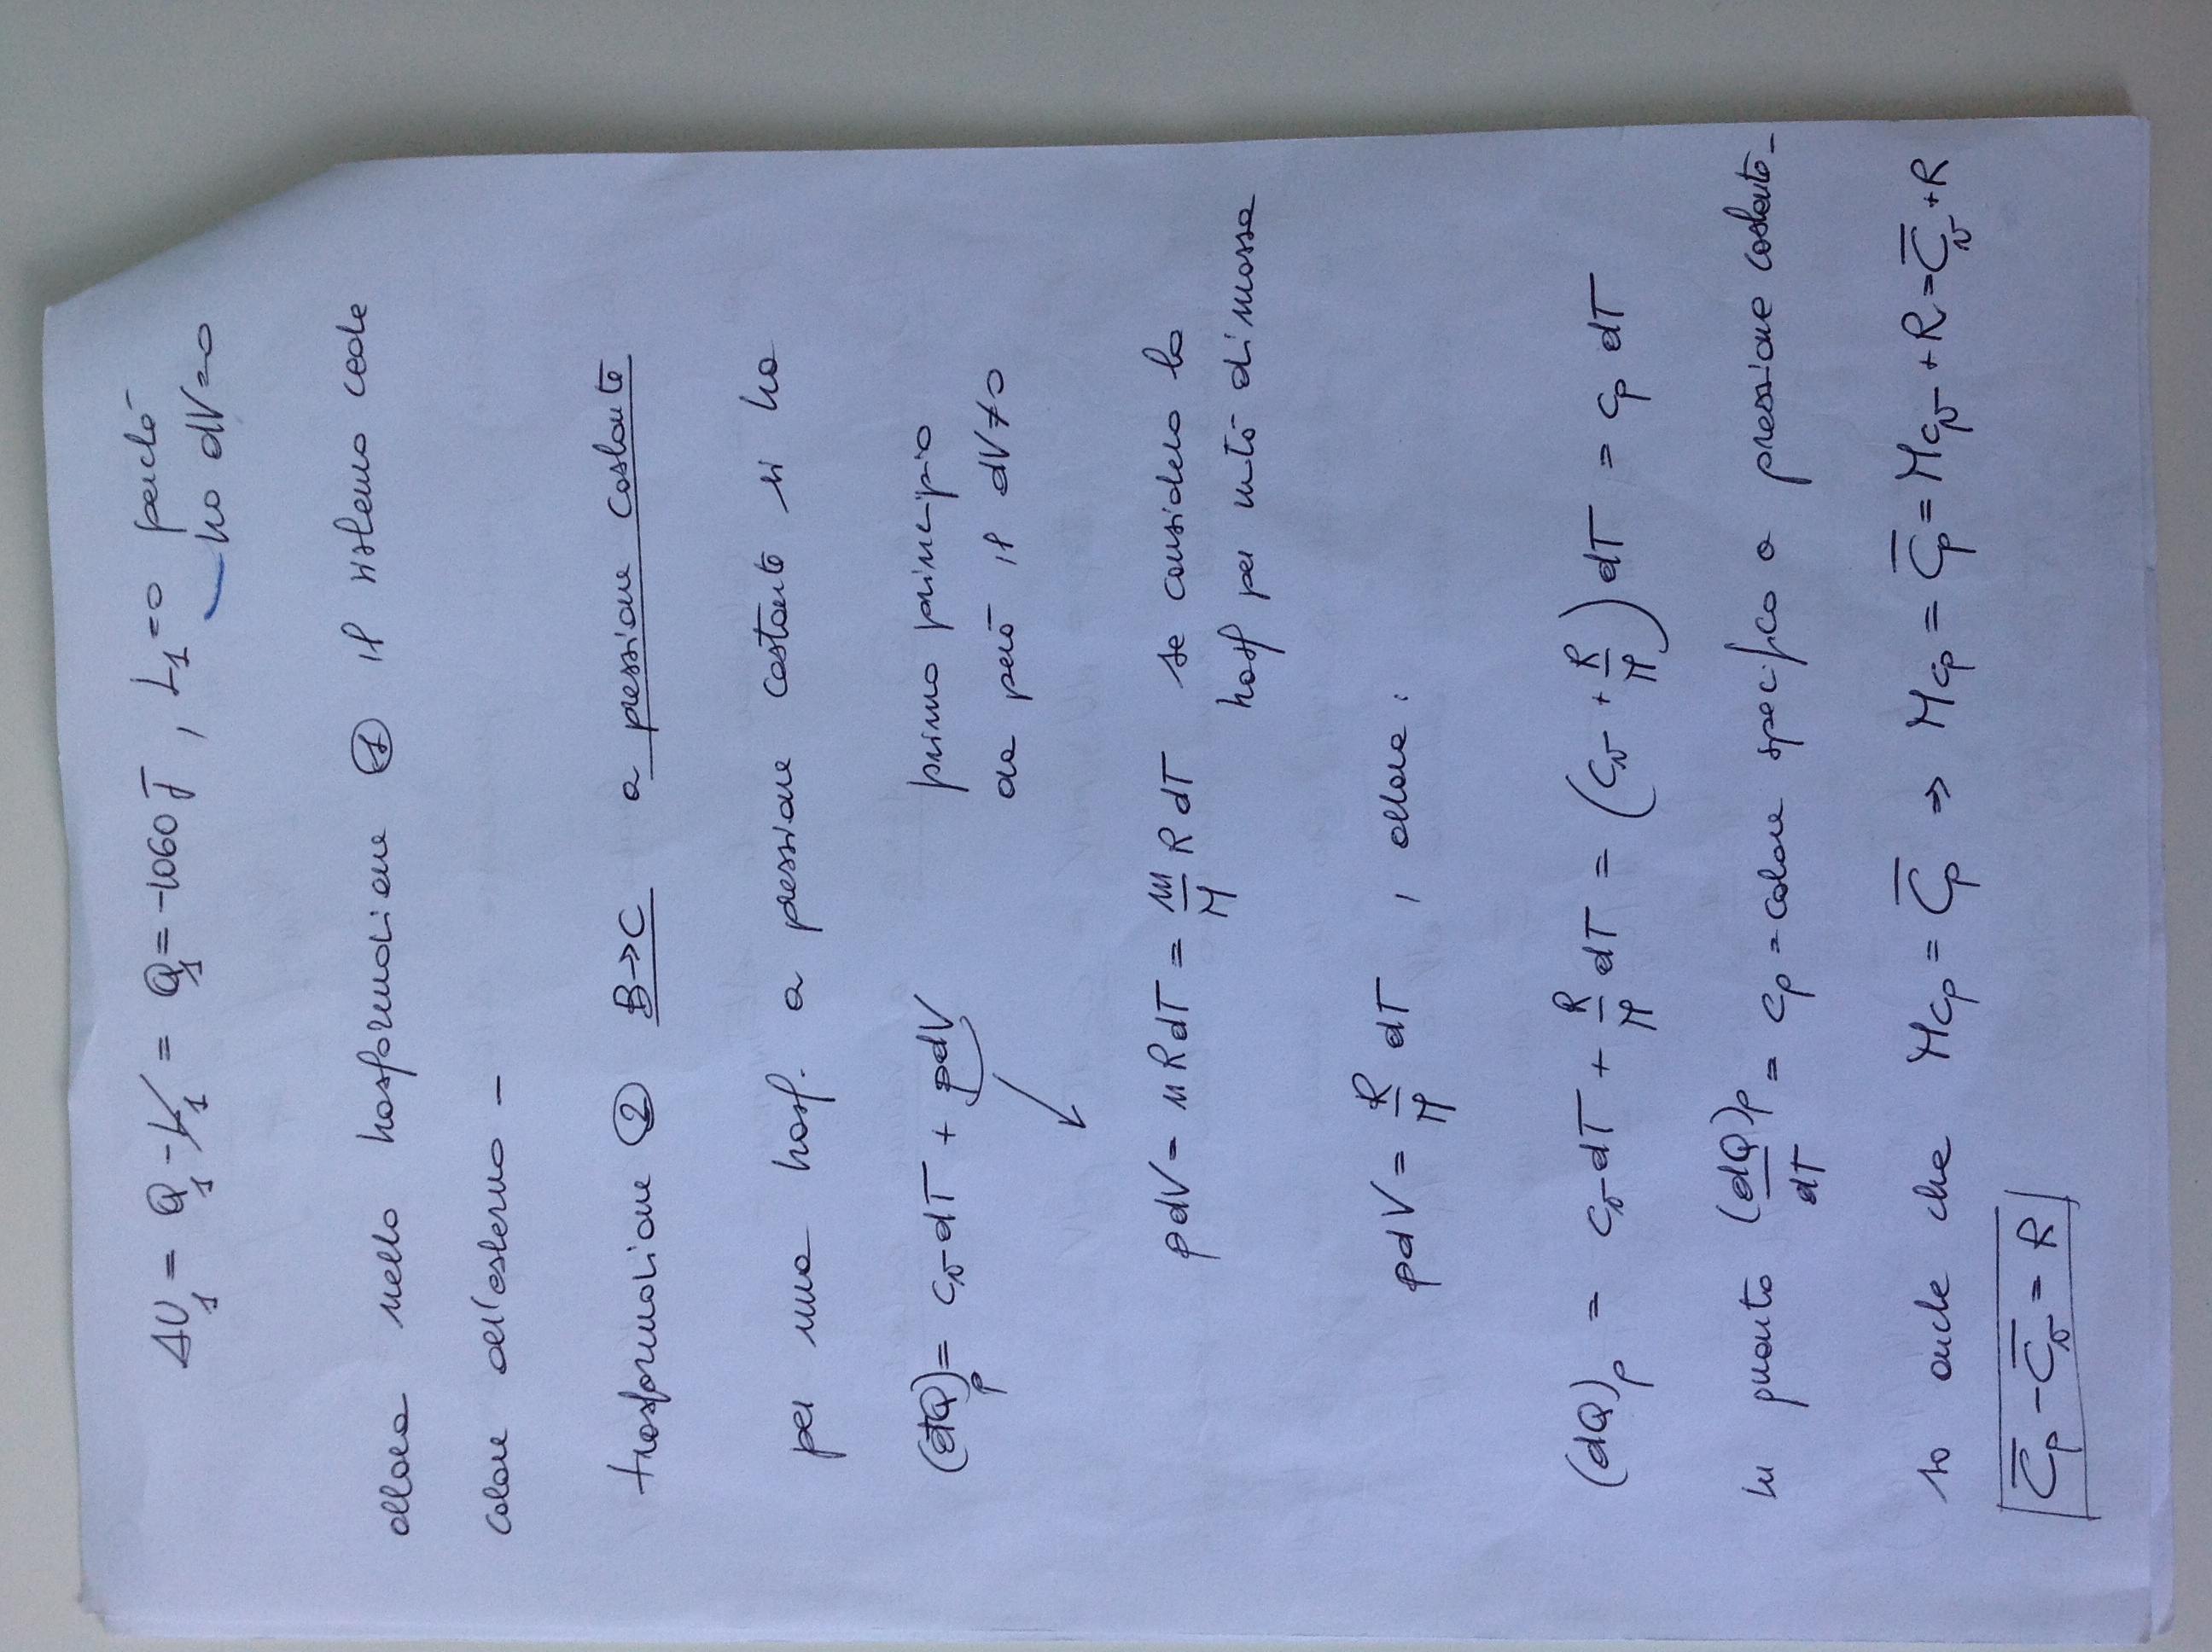 ΔU₁ = Q₁ - L₁ = Q₁ = -1060 J , L₁ = 0 perché
ho dV=0
allora nella trasformazione ① il sistema cede
calore all'esterno -
trasformazione ② B→C a pressione costante
per una trasf. a pressione costante si ha
(đQ)p = cv dT + pdV primo principio
da però il dV≠0
pdV = n R dT = m/M R dT se considero la
trasf per unità di massa
pdV = R/M dT , allora :
(dQ)p = cv dT + R/M dT = (cv + R/M) dT = cp dT
in quanto (dQ)p/dT = cp = calore specifico a pressione costante -
so anche che Mcp = C̄p ⇒ Mcp = C̄p = Mcv + R = C̄v + R
C̄p - C̄v = R